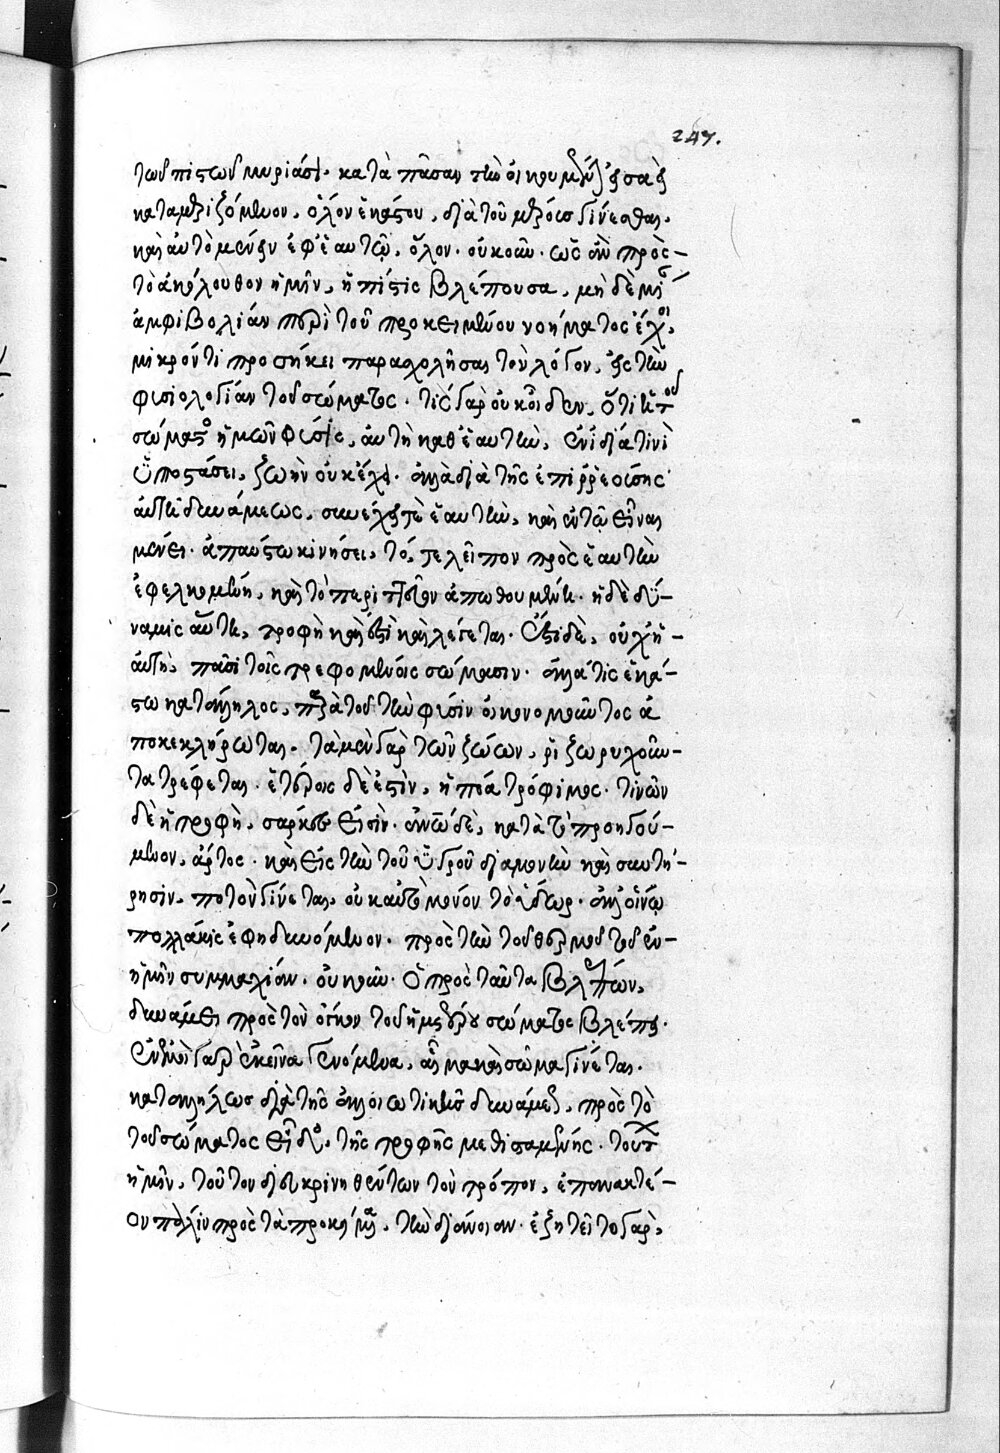 247.
τῶν πιστῶν μυριάσι. κατὰ πᾶσαν τὴν οἰκουμένην ἐς ἀεὶ
καταμεριζόμενον, ὅλον ἑκάστου, διὰ τοῦ μέρους γίνεσθαι,
καὶ αὐτὸ μένειν ἐφ' ἑαυτῷ, ὅλον. οὐκοῦν. ὡς ἂν πρὸς
τὸ ἀκόλουθον ἡμῖν, ἡ πίστις βλέπουσα, μηδὲ μίαν
ἀμφιβολίαν περὶ τοῦ προκειμένου νοήματος ἔχοι,
μικρόν τι προσήκει παρασχολῆσαι τὸν λόγον, ἐς τὴν
φυσιολογίαν τοῦ σώματος. τίς γὰρ οὐκ οἶδεν, ὅτι ἡ τοῦ
σώματος ἡμῶν φύσις, αὐτὴ καθ' ἑαυτὴν, ἐν ἰδίᾳ τινὶ
ὑποστάσει, ζωὴν οὐκ ἔχει. ἀλλὰ διὰ τῆς ἐπιρρεούσης
αὐτῇ δυνάμεως, συνέχει τε ἑαυτὴν, καὶ ἐν τῷ εἶναι
μένει. ἀπαύστῳ κινήσει, τό, τε λεῖπον πρὸς ἑαυτὴν
ἐφελκομένη, καὶ τὸ περιττεῦον ἀπωθουμένη. ἡ δὲ δύ-
ναμις αὕτη, τροφὴ καὶ ἔστι καὶ λέγεται. ἔστι δὲ, οὐχ ἡ
αὐτὴ, πᾶσι τοῖς τρεφομένοις σώμασιν. ἀλλά τις ἑκά-
στῳ κατάλληλος, παρὰ τοῦ τὴν φύσιν οἰκονομοῦντος ἀ
ποκεκλήρωται. τὰ μὲν γὰρ τῶν ζώων, ῥιζωρυχοῦν-
τα τρέφεται. ἑτέροις δέ ἐστιν, ἡ πόα τρόφιμος. τινῶν
δὲ ἡ τροφὴ, σάρκες εἰσίν. ἀνθρώπῳ δὲ, κατὰ τὸ προηγού-
μενον, ἄρτος. καὶ εἰς τὴν τοῦ ὑγροῦ διαμονὴν καὶ συντή-
ρησιν, ποτὸν γίνεται, οὐκ αὐτὸ μόνον τὸ ὕδωρ. ἀλλ' οἴνῳ
πολλάκις ἐφηδυνόμενον. πρὸς τὴν τοῦ θερμοῦ τοῦ ἐν
ἡμῖν συμμαχίαν. οὐκοῦν. ὁ πρὸς ταῦτα βλέπων,
δυνάμει πρὸς τὸν ὄγκον τοῦ ἡμετέρου σώματος βλέπει.
ἐν ἐμοὶ γὰρ ἐκεῖνα γενόμενα, αἷμα καὶ σῶμα γίνεται.
καταλλήλως διὰ τῆς ἀλλοιωτικῆς δυνάμεως, πρὸς τὸ
τοῦ σώματος εἶδος, τῆς τροφῆς μεθισταμένης. τούτων
ἡμῖν, τοῦτον διευκρινηθέντων τὸν τρόπον, ἐπανακτέ-
ον πάλιν πρὸς τὰ προκείμενα, τὴν διάνοιαν. ἐζητεῖτο γὰρ,